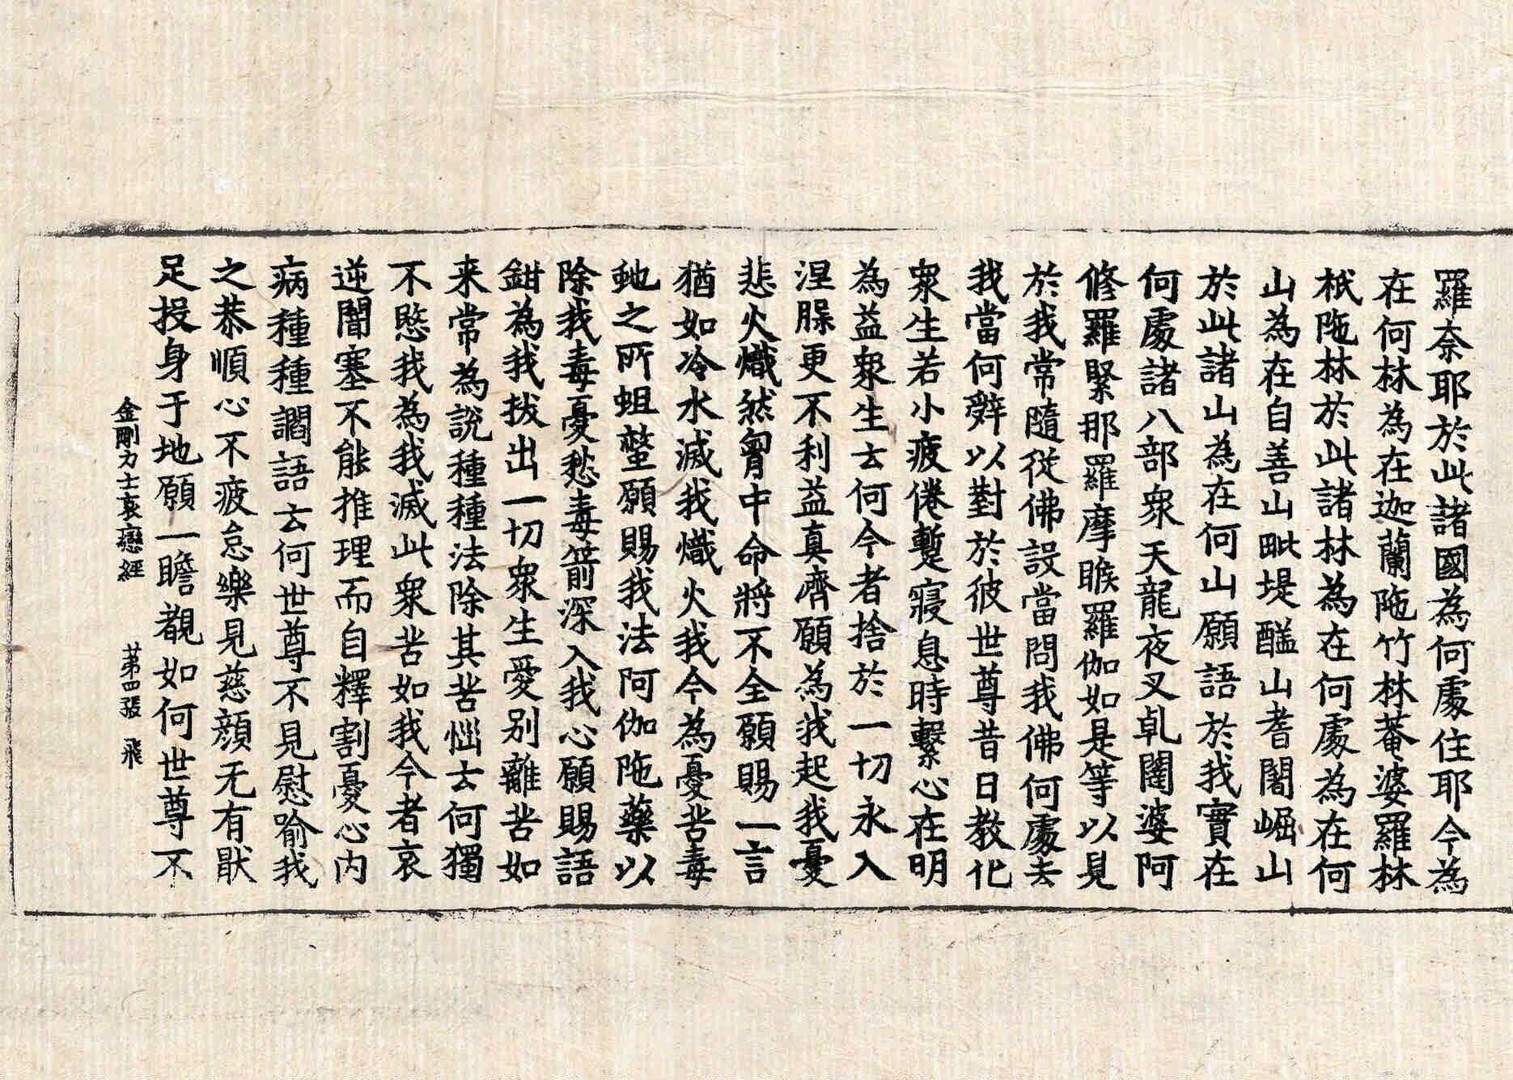 羅奈耶於此諸國為何處住耶今為
在何林為在迦蘭陁竹林菴婆羅林
祇陁林於此諸林為在何處為在何
山為在自善山毗堤醯山耆闍崛山
於此諸山為在何山願語於我實在
何處諸八部眾天龍夜叉乹闥婆阿
修羅緊那羅摩睺羅伽如是等以見
於我常隨從佛設當問我佛何處去
我當何辝以對於彼世尊昔日教化
眾生若小疲倦暫寢息時繫心在明
為益眾生云何今者捨於一切永入
涅槃更不利益真濟願為我起我憂
悲火熾然胷中命將不全願賜一言
猶如冷水滅我熾火我今為憂苦毒
虵之所蛆螫願賜我法阿伽陁藥以
除我毒憂愁毒箭深入我心願賜語
鉗為我拔出一切眾生愛別離苦如
来常為說種種法除其苦惱云何獨
不愍我為我滅此眾苦如我今者哀
逆闇塞不能推理而自釋割憂心内
病種種讇語云何世尊不見慰喻我
之恭順心不疲怠樂見慈顏无有猒
足投身于地願一瞻覩如何世尊不
金剛力士哀戀經 第四張 飛